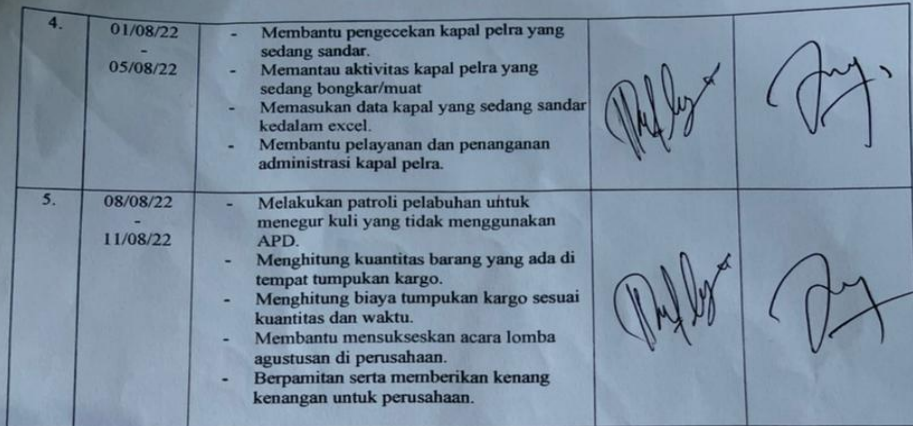 4.
01/08/22
-
05/08/22
- Membantu pengecekan kapal pelra yang
sedang sandar.
- Memantau aktivitas kapal pelra yang
sedang bongkar/muat
- Memasukan data kapal yang sedang sandar
kedalam excel.
- Membantu pelayanan dan penanganan
administrasi kapal pelra.
5.
08/08/22
-
11/08/22
- Melakukan patroli pelabuhan untuk
menegur kuli yang tidak menggunakan
APD.
- Menghitung kuantitas barang yang ada di
tempat tumpukan kargo.
- Menghitung biaya tumpukan kargo sesuai
kuantitas dan waktu.
- Membantu mensukseskan acara lomba
agustusan di perusahaan.
- Berpamitan serta memberikan kenang
kenangan untuk perusahaan.